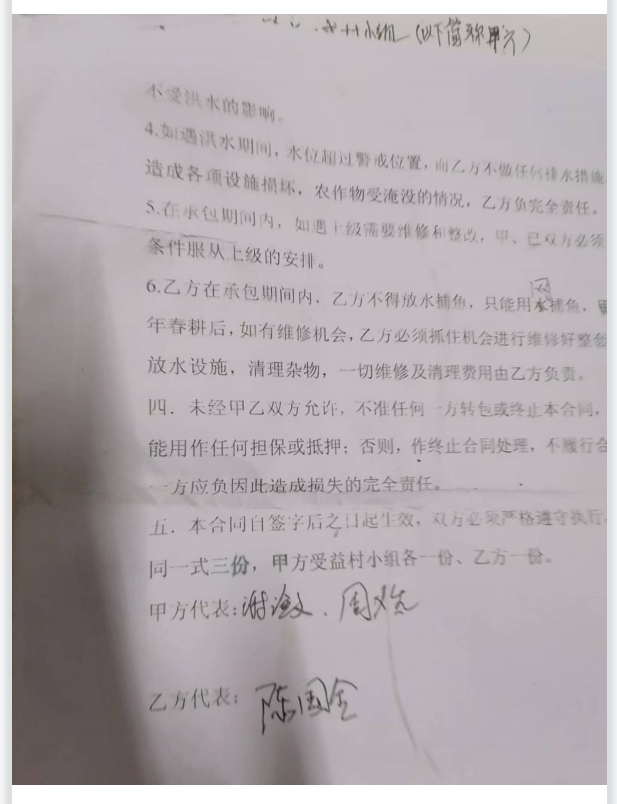 村小组(以下简称甲方)
不受洪水的影响。
4.如遇洪水期间,水位超过警戒位置,而乙方不做任何排水措施
造成各项设施损坏,农作物受淹没的情况,乙方负完全责任。
5.在承包期间内,如遇上级需要维修和整改,甲、已双方必须
条件服从上级的安排。
6.乙方在承包期间内,乙方不得放水捕鱼,只能用网捕鱼,
年春耕后,如有维修机会,乙方必须抓住机会进行维修好整套
放水设施,清理杂物,一切维修及清理费用由乙方负责。
四.未经甲乙双方允许,不准任何一方转包或终止本合同,
能用作任何担保或抵押;否则,作终止合同处理,不履行合
一方应负因此造成损失的完全责任。
五.本合同自签字后之日起生效,双方必须严格遵守执行,
同一式三份,甲方受益村小组各一份、乙方一份。
甲方代表:
乙方代表:陈国金